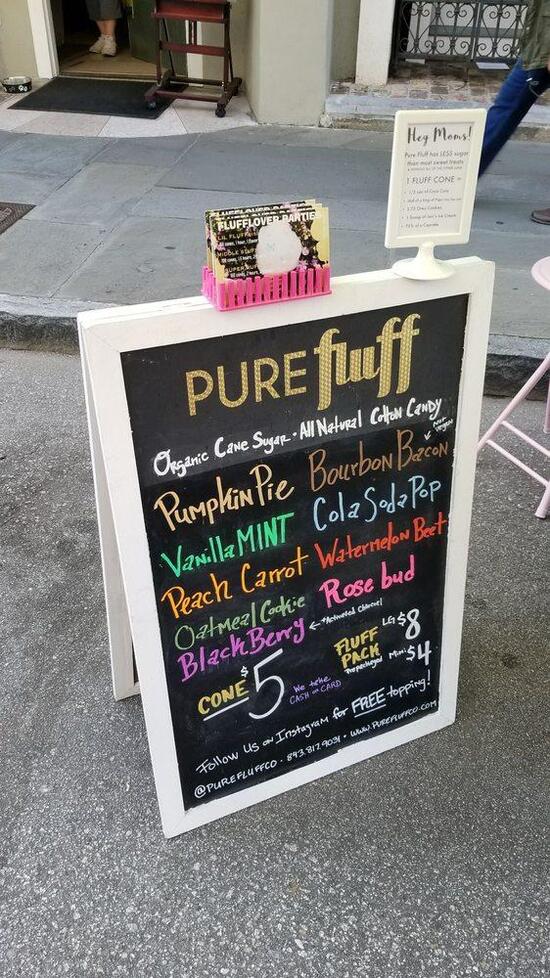 Hey Moms!
Pure Fluff has LESS sugar
than most sweet treats
1 FLUFF CONE =
FLUFFLOVER PARTIES
LIL FLUFF
MIDDLE
SUPER
PURE fluff
Organic Cane Sugar • All Natural Cotton Candy
Pumpkin Pie Bourbon Bacon
Vanilla MINT Cola Soda Pop
Peach Carrot Watermelon Beet
Oatmeal Cookie Rose bud
BlackBerry ← *Activated Charcoal
CONE $5 We take CASH or CARD
FLUFF PACK Prepackaged LG $8 Mini $4
Follow Us on Instagram for FREE topping!
@PUREFLUFFCO • 843.812.9031 • WWW.PUREFLUFFCO.COM